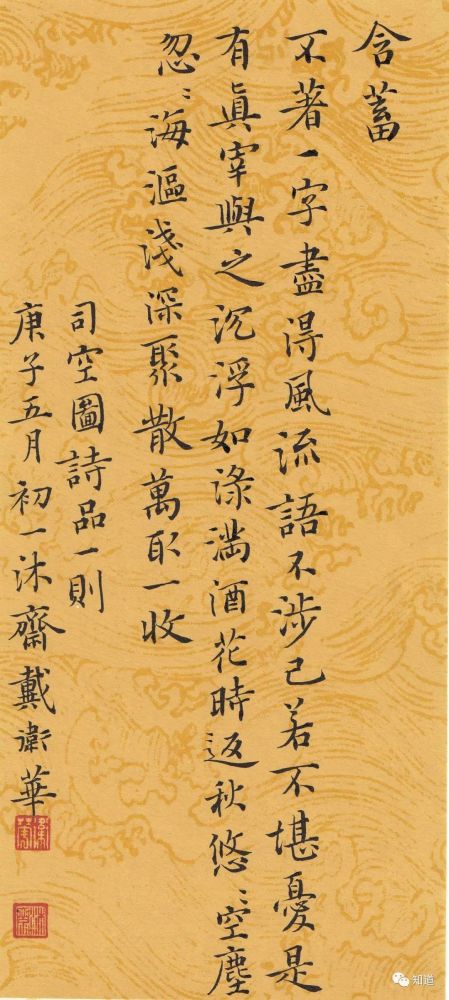 含蓄
不著一字盡得風流語不涉己若不堪憂是
有眞宰與之沉浮如淥滿酒花時返秋悠〻空塵
忽〻海漚淺深聚散萬取一收
司空圖詩品一則
庚子五月初一沐齋戴衛華
知道